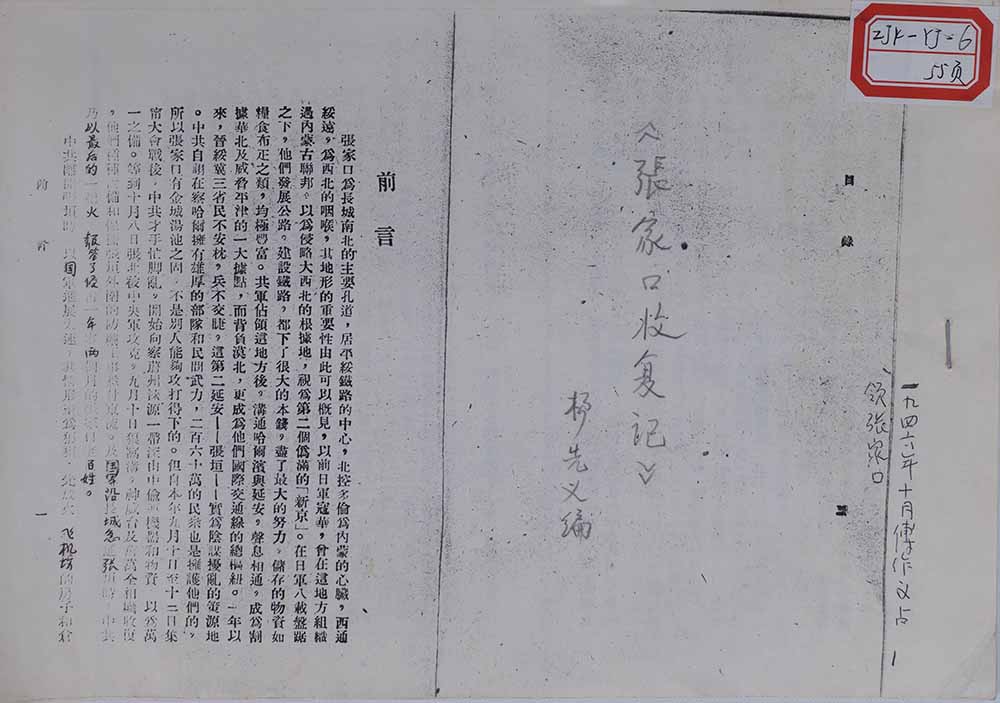 ZJK-YJ-6
55页
一九四六年十月傅作义占
领张家口
1
目錄
《張家口收复记》
杨先义編
前言
張家口爲長城南北的主要孔道，居平綏鐵路的中心，北控多倫爲內蒙的心臟，西通
綏遠，爲西北的咽喉，其地形的重要性由此可以概見，以前日軍寇華，曾在這地方組織
過內蒙古聯邦。以爲侵略大西北的根據地，視爲第二個僞滿的「新京」。在日軍八載盤踞
之下，他們發展公路。建設鐵路，都下了很大的本錢，盡了最大的努力。儲存的物資如
糧食布疋之類，均極豐富。共軍佔領這地方後。溝通哈爾濱與延安，聲息相通，成爲割
據華北及威脅平津的一大據點，而背負漠北，更成爲他們國際交通線的總樞紐。一年以
來，晉綏冀三省民不安枕，兵不交睫。這第二延安——張垣——實爲陰謀擾亂的策源地
。中共自詡在察哈爾擁有雄厚的部隊和民間武力，二百六十萬的民衆也是擁護他們的。
所以張家口有金城湯池之固，不是別人能夠攻打得下的。但自本年九月十日至十二日集
甯大會戰後，中共才手忙脚亂，開始向察蔚州淶源一帶深山中偷運機器和物資，以爲萬
一之備。等到十月八日張北被中央軍攻克。九月十日狼窩溝，神威台及萬全相繼收復
，他們 国军沿長城急 張垣時，中共
乃以最后的一 火 報答了 年 两個月的 百姓。
中共離開張垣時，以国軍進展 飞机場的房子和倉
前言
一